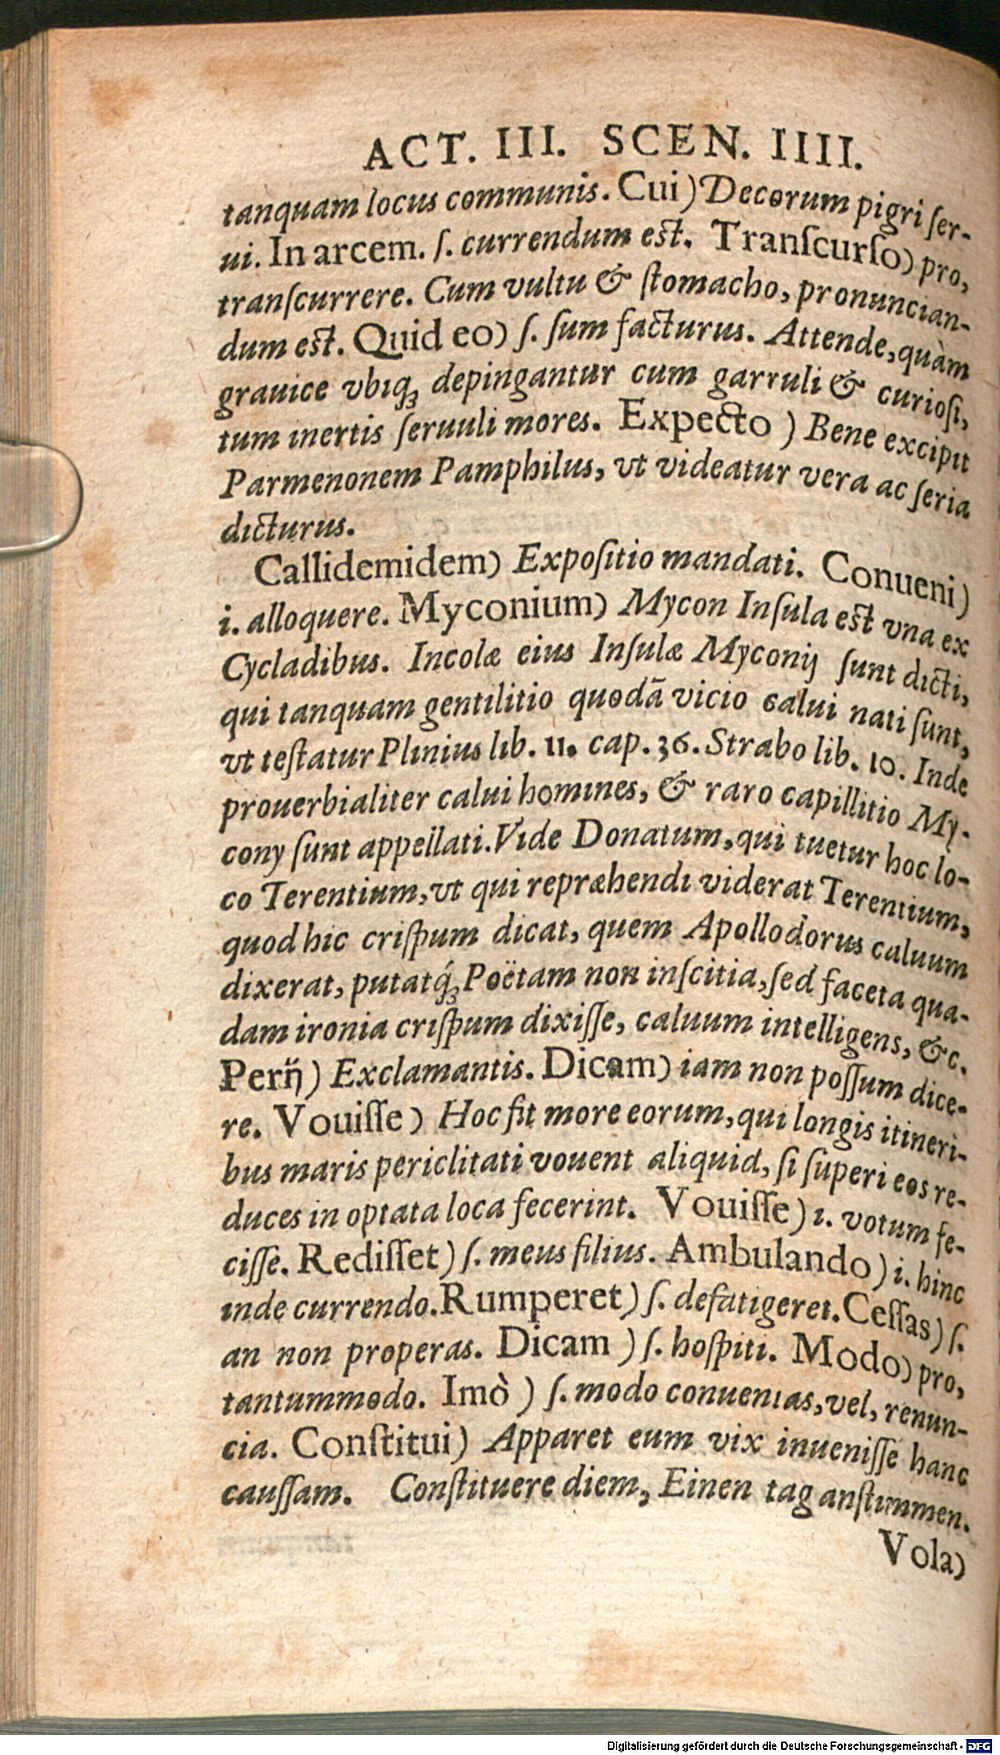 ACT. III. SCEN. IIII.
tanquam locus communis. Cui) Decorum pigri ſer-
ui. In arcem. ſ. currendum eſt. Tranſcurſo) pro,
tranſcurrere. Cum vultu & ſtomacho, pronuncian-
dum eſt. Quid eo) ſ. ſum facturus. Attende, quàm
grauice vbiqꝫ depingantur cum garruli & curioſi,
tum inertis ſeruuli mores. Expecto ) Bene excipit
Parmenonem Pamphilus, vt videatur vera ac ſeria
dicturus.
Callidemidem) Expoſitio mandati. Conueni)
i. alloquere. Myconium) Mycon Inſula eſt vna ex
Cycladibus. Incolæ eius Inſulæ Myconij ſunt dicti,
qui tanquam gentilitio quodã vicio calui nati ſunt,
vt teſtatur Plinius lib. 11. cap. 36. Strabo lib. 10. Inde
prouerbialiter calui homines, & raro capillitio My-
cony ſunt appellati. Vide Donatum, qui tuetur hoc lo-
co Terentium, vt qui repræhendi viderat Terentium,
quod hic criſpum dicat, quem Apollodorus caluum
dixerat, putatqꝫ́ Poëtam non inſcitia, ſed faceta qua-
dam ironia criſpum dixiſſe, caluum intelligens, &c.
Perij) Exclamantis. Dicam) iam non poſſum dice-
re. Vouiſſe ) Hoc fit more eorum, qui longis itineri-
bus maris periclitati vouent aliquid, ſi ſuperi eos re-
duces in optata loca fecerint. Vouiſſe) i. votum fe-
ciſſe. Rediſſet) ſ. meus filius. Ambulando) i. hinc
inde currendo. Rumperet) ſ. defatigeret. Ceſſas) ſ.
an non properas. Dicam ) ſ. hoſpiti. Modo) pro,
tantummodo. Imò ) ſ. modo conuenias, vel, renun-
cia. Conſtitui) Apparet eum vix inueniſſe hanc
cauſſam. Conſtituere diem, Einen tag anſtimmen.
Vola)
Digitalisierung gefördert durch die Deutsche Forschungsgemeinschaft - DFG